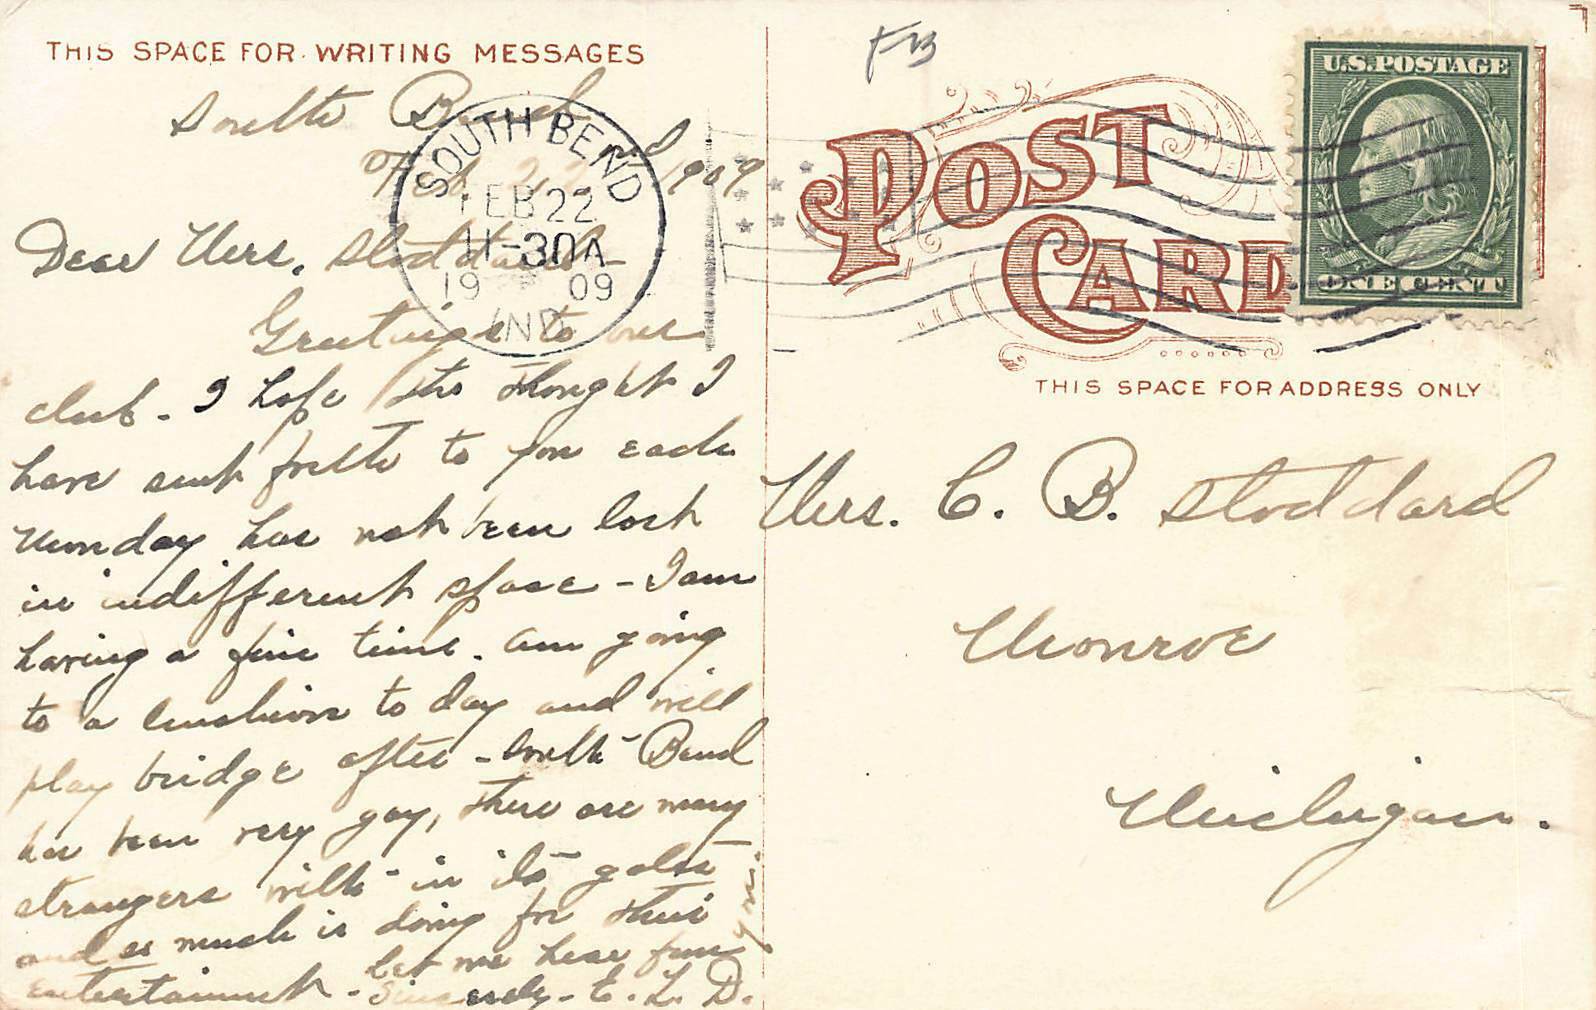 THIS SPACE FOR WRITING MESSAGES
South Bend
Feb 22nd 1909
Dear Mrs. Stoddard -
Greetings to our
club - I hope the thought I
have sent forth to you each
Monday has not been lost
in indifferent space - I am
having a fine time. am going
to a luncheon to day and will
play bridge after - South Bend
has been very gay, there are many
strangers with in its gates
and as much is doing for their
entertainment - Let me hear from
you.
Sincerely - E. L. D.
SOUTH BEND
FEB 22
11-30A
19 09
IND.
POST
CARD
U.S. POSTAGE
ONE CENT
THIS SPACE FOR ADDRESS ONLY
Mrs. C. B. Stoddard
Monroe
Michigan.